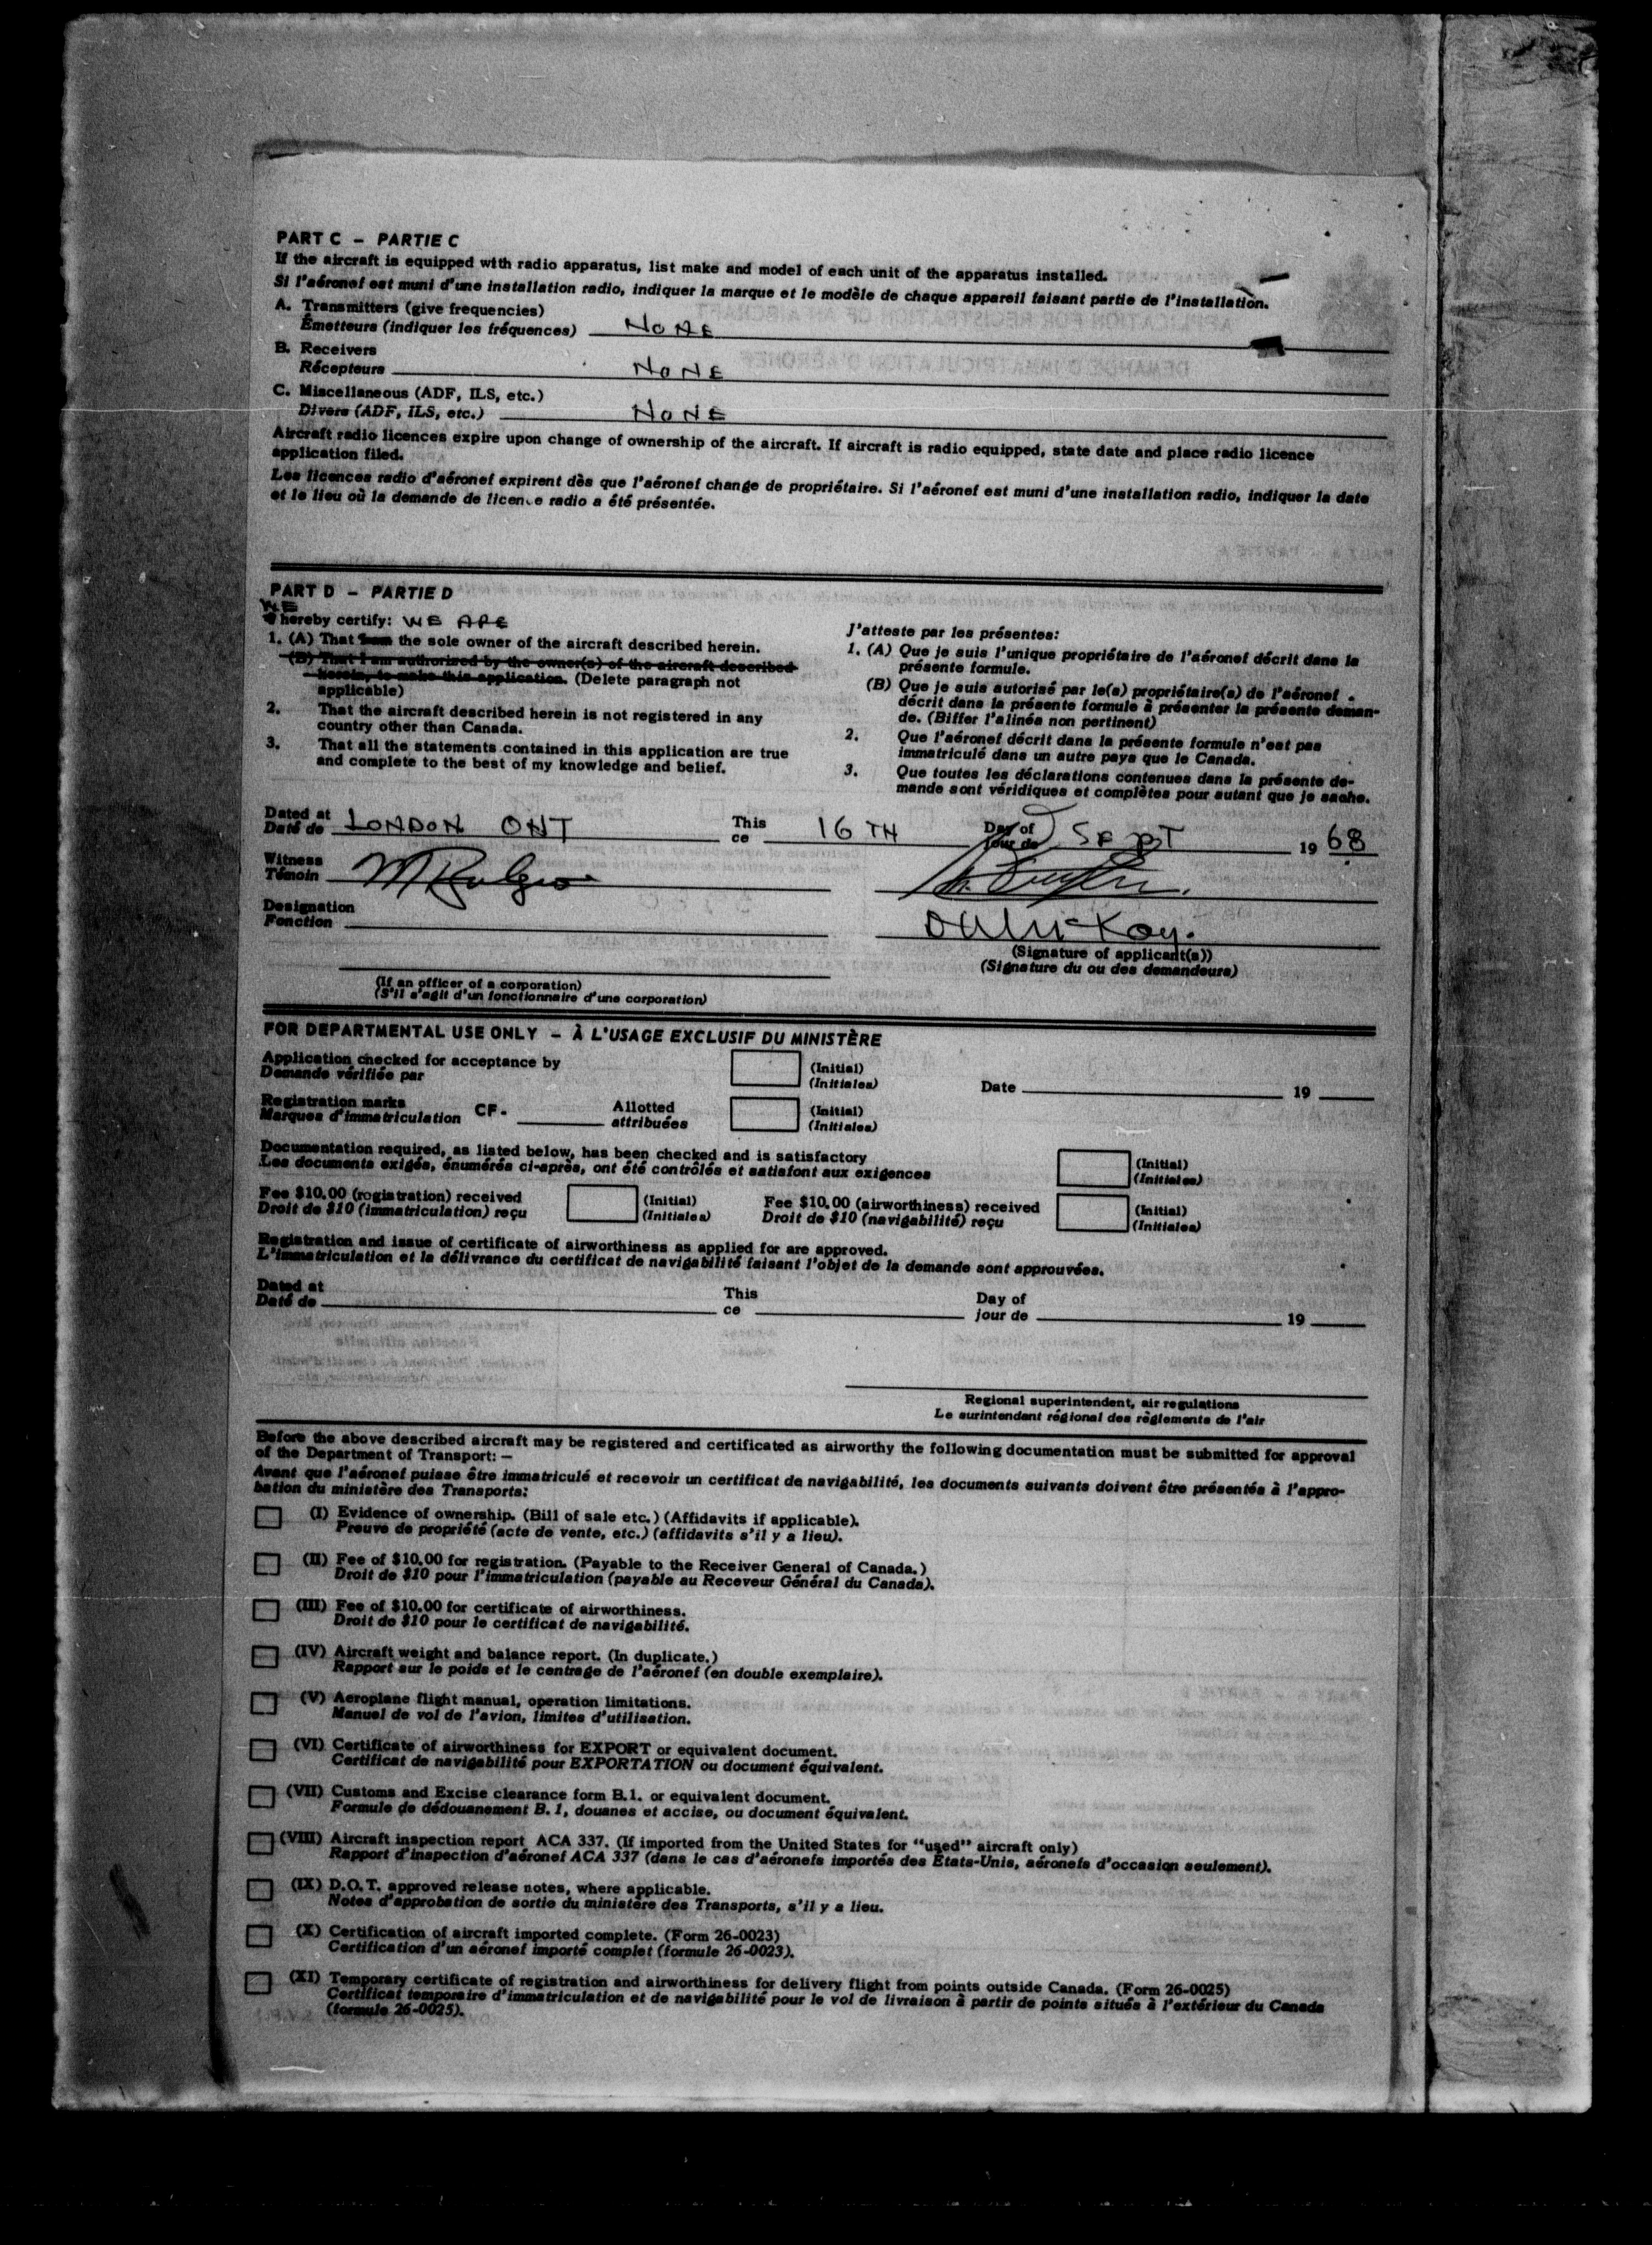 PART C – PARTIE C
If the aircraft is equipped with radio apparatus, list make and model of each unit of the apparatus installed.
Si l'aéronef est muni d'une installation radio, indiquer la marque et le modèle de chaque appareil faisant partie de l'installation.
A. Transmitters (give frequencies)
Émetteurs (indiquer les fréquences) NONE
B. Receivers
Récepteurs NONE
C. Miscellaneous (ADF, ILS, etc.)
Divers (ADF, ILS, etc.) NONE
Aircraft radio licences expire upon change of ownership of the aircraft. If aircraft is radio equipped, state date and place radio licence
application filed.
Les licences radio d'aéronef expirent dès que l'aéronef change de propriétaire. Si l'aéronef est muni d'une installation radio, indiquer la date
et le lieu où la demande de licence radio a été présentée.
PART D – PARTIE D
WE
I hereby certify: WE ARE
1. (A) That I am the sole owner of the aircraft described herein.
(B) That I am authorized by the owner(s) of the aircraft described
herein, to make this application. (Delete paragraph not
applicable)
2. That the aircraft described herein is not registered in any
country other than Canada.
3. That all the statements contained in this application are true
and complete to the best of my knowledge and belief.
J'atteste par les présentes:
1. (A) Que je suis l'unique propriétaire de l'aéronef décrit dans la
présente formule.
(B) Que je suis autorisé par le(s) propriétaire(s) de l'aéronef
décrit dans la présente formule à présenter la présente deman-
de. (Biffer l'alinéa non pertinent)
2. Que l'aéronef décrit dans la présente formule n'est pas
immatriculé dans un autre pays que le Canada.
3. Que toutes les déclarations contenues dans la présente de-
mande sont véridiques et complètes pour autant que je sache.
Dated at This Day of
Daté de LONDON ONT ce 16 TH jour de SEPT 19 68
Witness
Témoin
Designation
Fonction
McKay.
(Signature of applicant(s))
(Signature du ou des demandeurs)
(If an officer of a corporation)
(S'il s'agit d'un fonctionnaire d'une corporation)
FOR DEPARTMENTAL USE ONLY – À L'USAGE EXCLUSIF DU MINISTÈRE
Application checked for acceptance by (Initial)
Demande vérifiée par (Initiales) Date 19
Registration marks CF- Allotted (Initial)
Marques d'immatriculation attribuées (Initiales)
Documentation required, as listed below, has been checked and is satisfactory (Initial)
Les documents exigés, énumérés ci-après, ont été contrôlés et satisfont aux exigences (Initiales)
Fee $10.00 (registration) received (Initial) Fee $10.00 (airworthiness) received (Initial)
Droit de $10 (immatriculation) reçu (Initiales) Droit de $10 (navigabilité) reçu (Initiales)
Registration and issue of certificate of airworthiness as applied for are approved.
L'immatriculation et la délivrance du certificat de navigabilité faisant l'objet de la demande sont approuvées.
Dated at This Day of
Daté de ce jour de 19
Regional superintendent, air regulations
Le surintendant régional des règlements de l'air
Before the above described aircraft may be registered and certificated as airworthy the following documentation must be submitted for approval
of the Department of Transport: –
Avant que l'aéronef puisse être immatriculé et recevoir un certificat de navigabilité, les documents suivants doivent être présentés à l'appro-
bation du ministère des Transports:
(I) Evidence of ownership. (Bill of sale etc.) (Affidavits if applicable).
Preuve de propriété (acte de vente, etc.) (affidavits s'il y a lieu).
(II) Fee of $10.00 for registration. (Payable to the Receiver General of Canada.)
Droit de $10 pour l'immatriculation (payable au Receveur Général du Canada).
(III) Fee of $10.00 for certificate of airworthiness.
Droit de $10 pour le certificat de navigabilité.
(IV) Aircraft weight and balance report. (In duplicate.)
Rapport sur le poids et le centrage de l'aéronef (en double exemplaire).
(V) Aeroplane flight manual, operation limitations.
Manuel de vol de l'avion, limites d'utilisation.
(VI) Certificate of airworthiness for EXPORT or equivalent document.
Certificat de navigabilité pour EXPORTATION ou document équivalent.
(VII) Customs and Excise clearance form B.1. or equivalent document.
Formule de dédouanement B.1, douanes et accise, ou document équivalent.
(VIII) Aircraft inspection report ACA 337. (If imported from the United States for "used" aircraft only)
Rapport d'inspection d'aéronef ACA 337 (dans le cas d'aéronefs importés des États-Unis, aéronefs d'occasion seulement).
(IX) D.O.T. approved release notes, where applicable.
Notes d'approbation de sortie du ministère des Transports, s'il y a lieu.
(X) Certification of aircraft imported complete. (Form 26-0023)
Certification d'un aéronef importé complet (formule 26-0023).
(XI) Temporary certificate of registration and airworthiness for delivery flight from points outside Canada. (Form 26-0025)
Certificat temporaire d'immatriculation et de navigabilité pour le vol de livraison à partir de points situés à l'extérieur du Canada
(formule 26-0025).